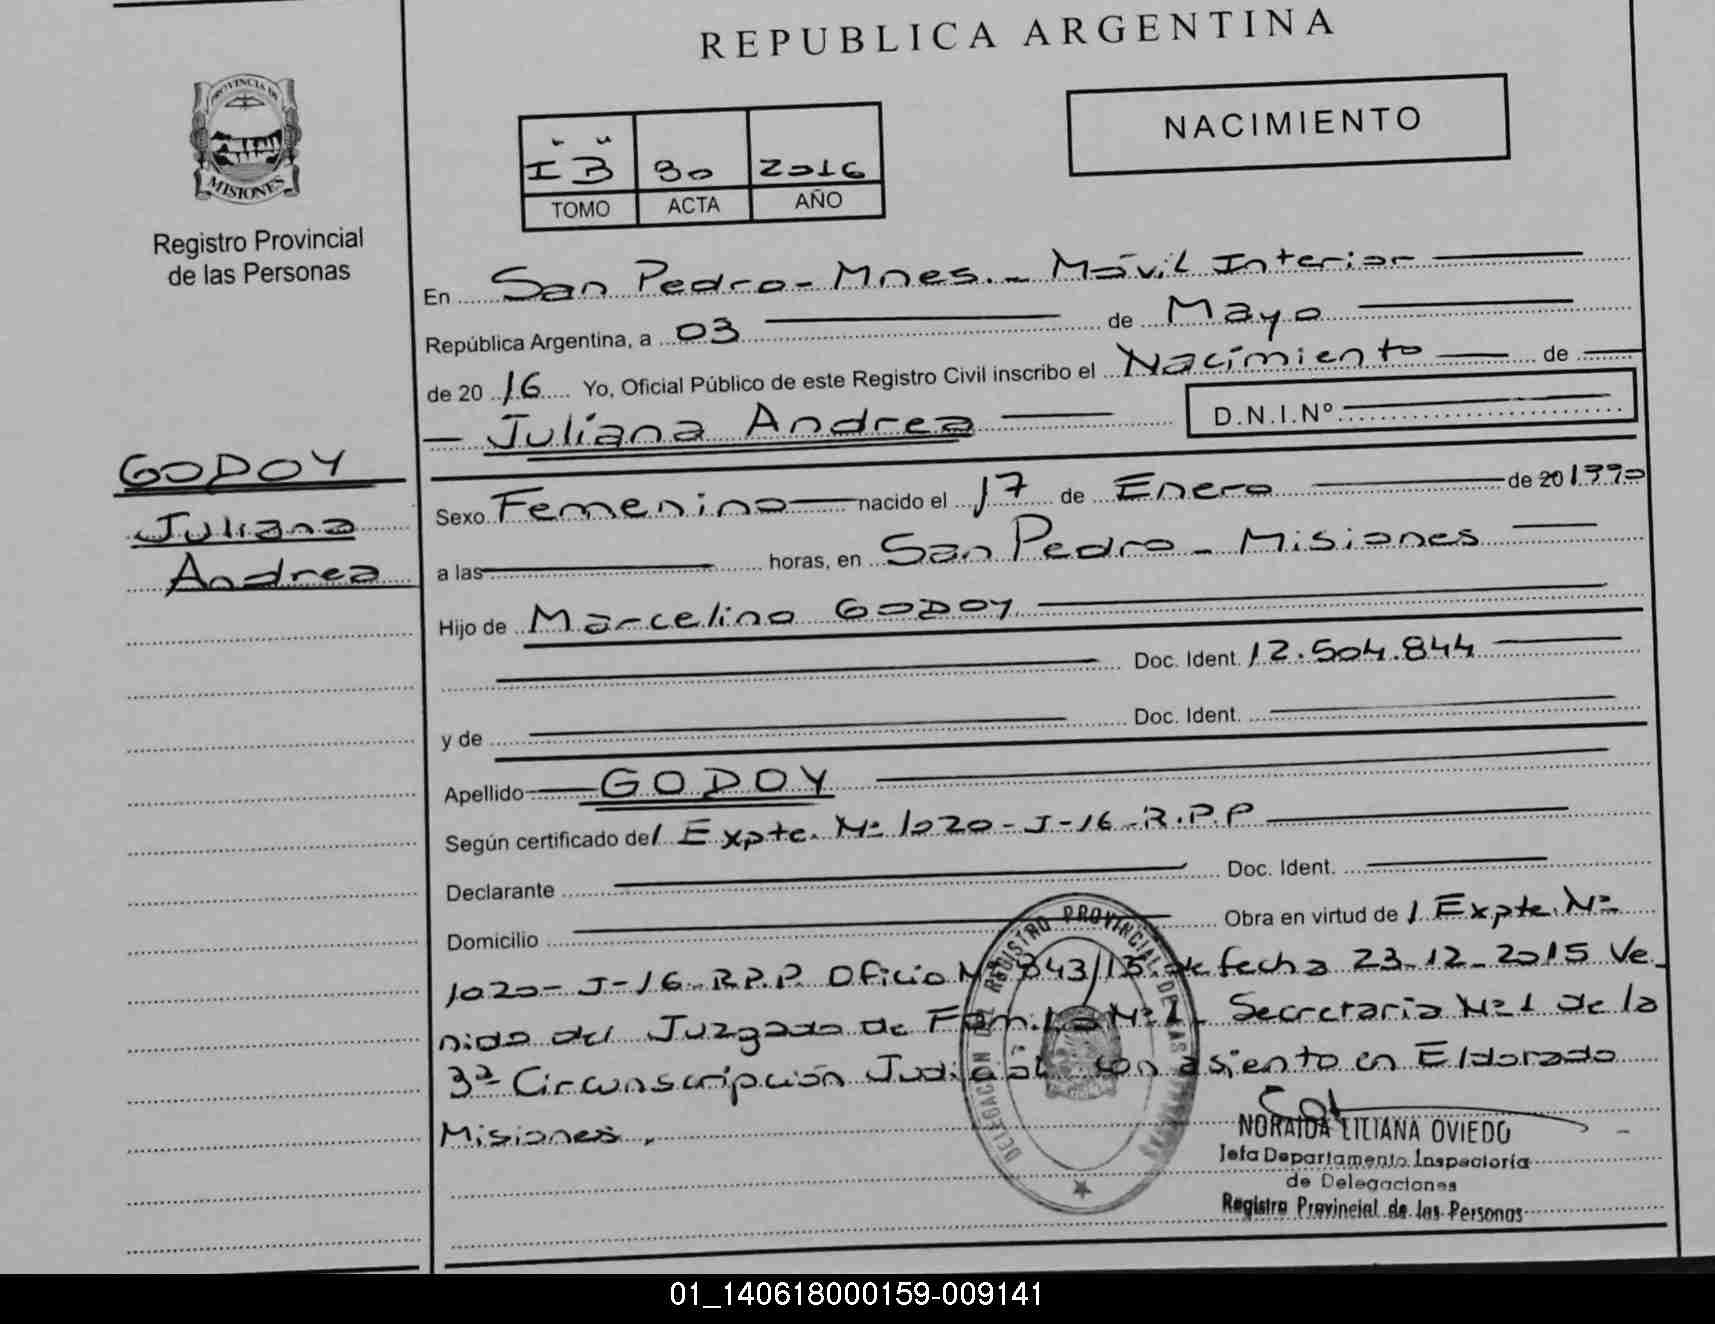 REPUBLICA ARGENTINA
PROVINCIA DE
MISIONES
Registro Provincial
de las Personas
NACIMIENTO
I B 30 2016
TOMO ACTA AÑO
En San Pedro - Mnes. - Móvil Interior
República Argentina, a 03 de Mayo
de 20 16 Yo, Oficial Público de este Registro Civil inscribo el Nacimiento de
Juliana Andrea D.N.I.Nº
GODOY
Juliana
Andrea
Sexo Femenino nacido el 17 de Enero de 20 1990
a las horas, en San Pedro - Misiones
Hijo de Marcelino GODOY
Doc. Ident. 12.504.844
y de Doc. Ident.
Apellido GODOY
Según certificado del Expte. Nº 1020-J-16-R.P.P
Declarante Doc. Ident.
Domicilio Obra en virtud del Expte. Nº
1020-J-16-R.P.P. Oficio Nº 343/15. de fecha 23-12-2015 Ve
nido del Juzgado de Familia Nº 1 - Secretaria Nº 1 de la
3ª Circunscripción Judicial con asiento en Eldorado
Misiones.
DELEGACION DEL REGISTRO PROVINCIAL DE LAS
NORAIDA LILIANA OVIEDO
Jefa Departamento Inspectoría
de Delegaciones
Registro Provincial de las Personas
01_140618000159-009141